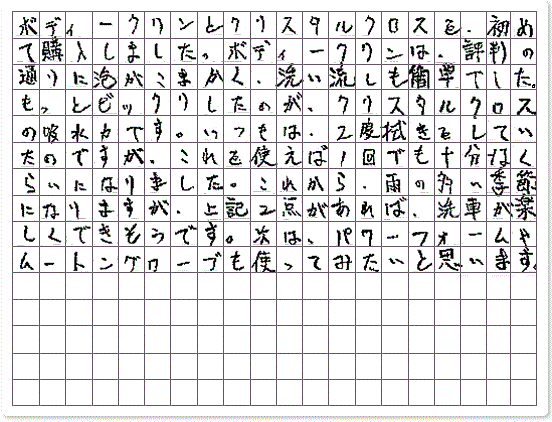 ボディークリンとクリスタルクロスを、初め
て購入しました。ボディークリンは、評判の
通りに泡がこまかく、洗い流しも簡単でした。
もっとビックリしたのが、クリスタルクロス
の吸水力です。いつもは、2度拭きをしてい
たのですが、これを使えば1回でも十分なく
らいになりました。これから、雨の多い季節
になりますが、上記2点があれば、洗車が楽
しくできそうです。次は、パワーフォームや
ムートングローブも使ってみたいと思います。